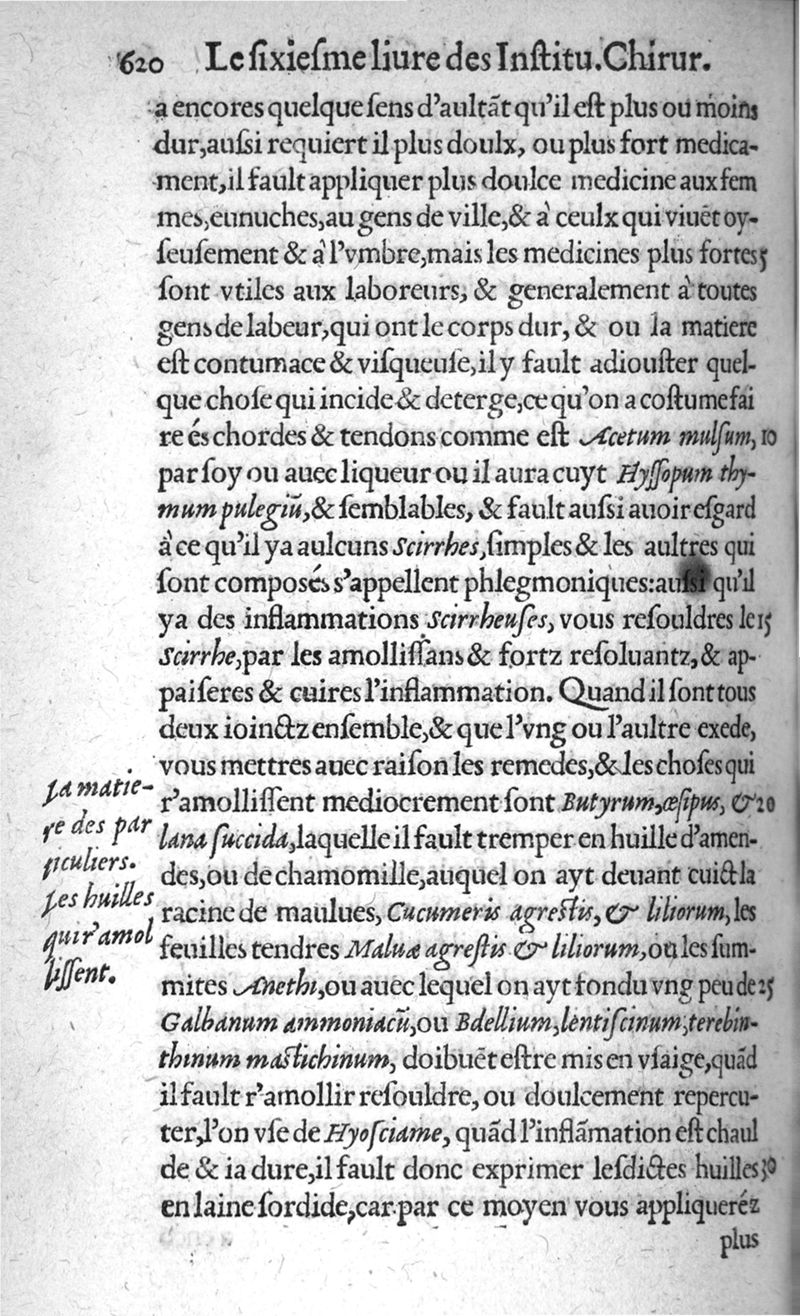 620 Le sixiesme liure des Institu. Chirur.
a encores quelque sens d'aultãt qu'il est plus ou moins
dur, aussi requiert il plus doulx, ou plus fort medica-
ment, il fault appliquer plus doulce medicine aux fem
mes, eunuches, au gens de ville, & à ceulx qui viuẽt oy-
seusement & à l'vmbre, mais les medicines plus fortes 5
sont vtiles aux laboreurs, & generalement à toutes
gens de labeur, qui ont le corps dur, & ou la matiere
est contumace & visqueuse, il y fault adiouster quel-
que chose qui incide & deterge, ce qu'on a costume fai
re és chordes & tendons comme est Acetum mulsum, 10
par soy ou auec liqueur ou il aura cuyt Hyssopum thy-
mum pulegiũ, & semblables, & fault aussi auoir esgard
à ce qu'il ya aulcuns Scirrhes, simples & les aultres qui
sont composés s'appellent phlegmoniques: aussi qu'il
ya des inflammations Scirrheuses, vous resouldres le 15
Scirrhe, par les amollissans & fortz resoluantz, & ap-
paiseres & cuires l'inflammation. Quand il sont tous
deux ioinctz ensemble, & que l'vng ou l'aultre exede,
vous mettres auec raison les remedes, & les choses qui
r'amollissent mediocrement sont Butyrum, œsipus, & 20
lana succida, laquelle il fault tremper en huille d'amen-
des, ou de chamomille, auquel on ayt deuant cuict la
racine de maulues, Cucumeris agrestis, & liliorum, les
feuilles tendres Maluæ agrestis & liliorum, ou les sum-
mites Anethi, ou auec lequel on ayt fondu vng peu de 25
Galbanum ammoniacũ, ou Bdellium, lentiscinum, terebin-
thinum mastichinum, doibuẽt estre mis en vsaige, quãd
il fault r'amollir resouldre, ou doulcement repercu-
ter, l'on vse de Hyosciame, quãd l'inflãmation est chaul
de & ia dure, il fault donc exprimer lesdictes huilles 30
en laine sordide, car par ce moyen vous appliqueréz
plus
La matie-
re des par
ticuliers.
Les huilles
qui r'amol
lissent.